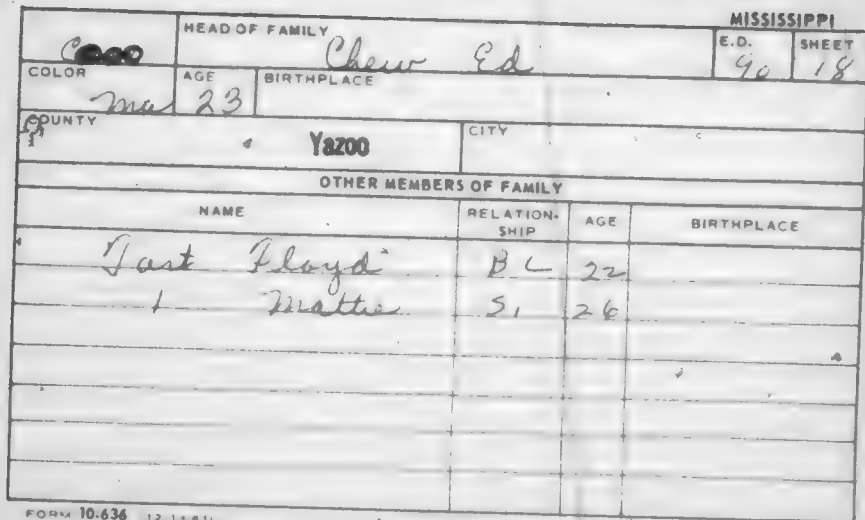 MISSISSIPPI
HEAD OF FAMILY
E.D.
SHEET
C
Chew Ed
90
18
COLOR
AGE
BIRTHPLACE
Mas
23
COUNTY
Yazoo
CITY
OTHER MEMBERS OF FAMILY
NAME
RELATION-SHIP
AGE
BIRTHPLACE
Tast Floyd BL 22
Mattie SI 26
FORM 10.636